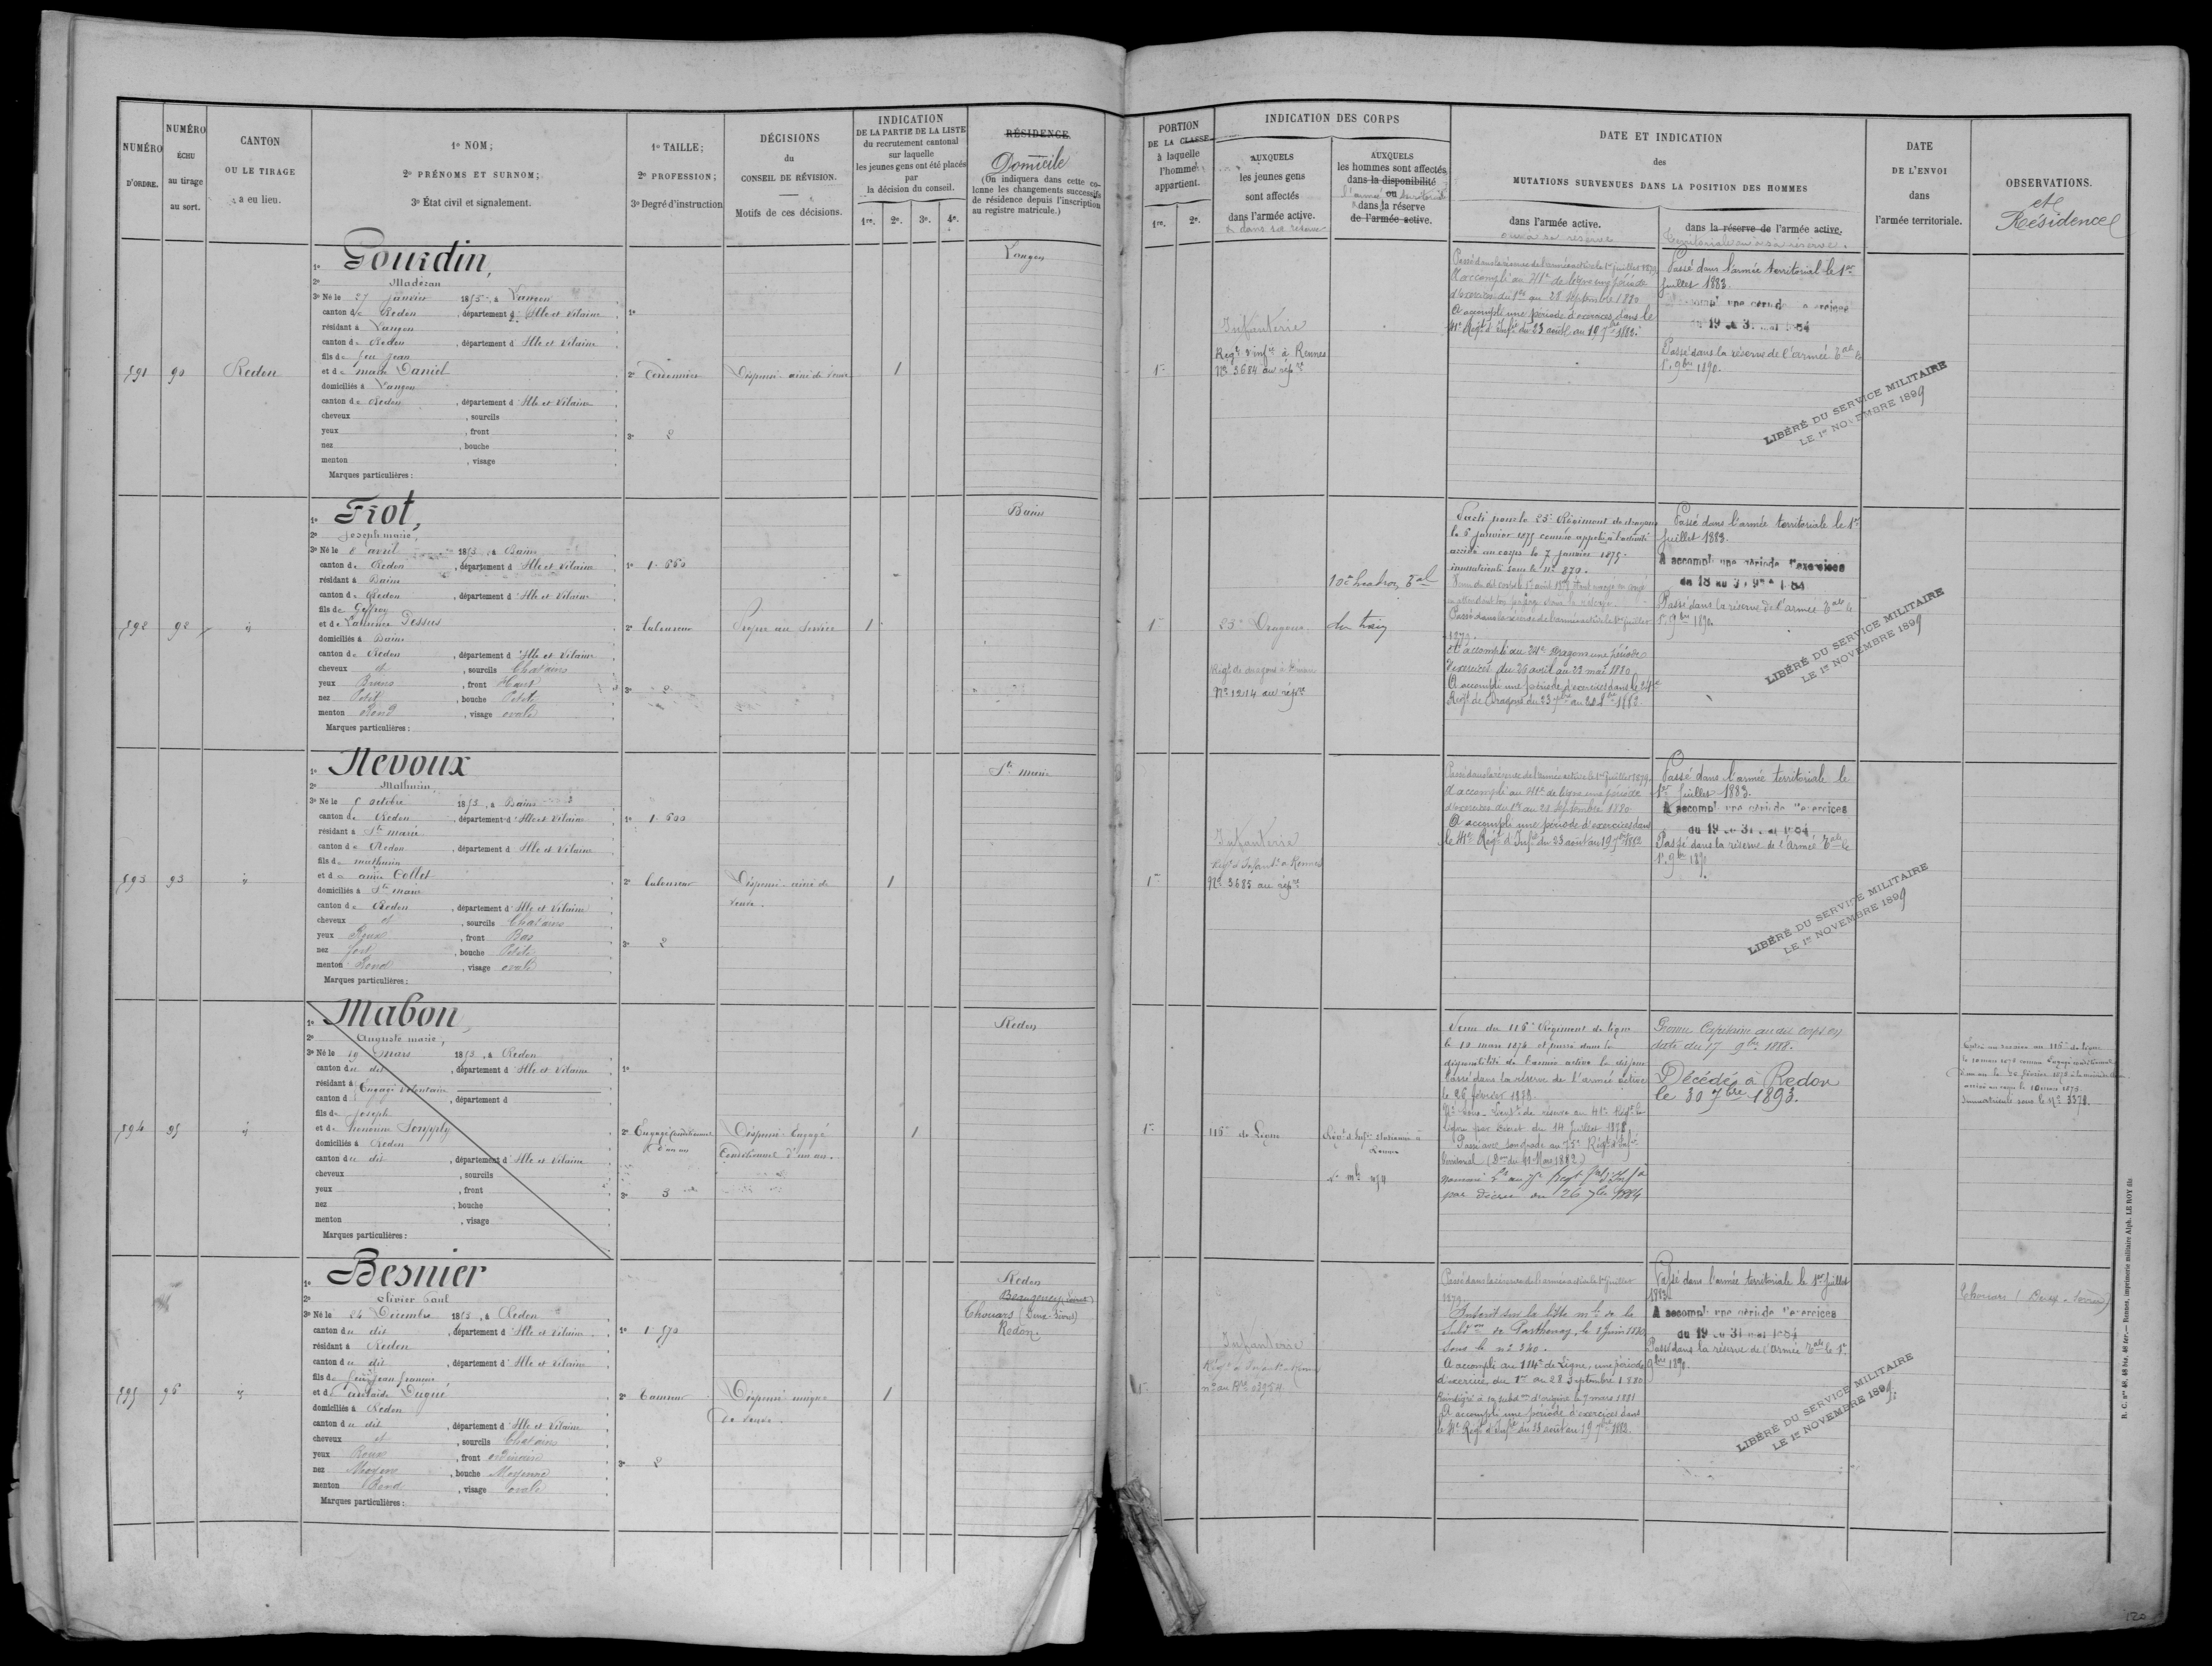 NUMÉRO D'ORDRE.
NUMÉRO ÉCHU au tirage au sort.
CANTON OU LE TIRAGE a eu lieu.
1º NOM;
2º PRÉNOMS ET SURNOM;
3º État civil et signalement.
1º TAILLE;
2º PROFESSION;
3º Degré d'instruction
DÉCISIONS
du
CONSEIL DE RÉVISION.
Motifs de ces décisions.
INDICATION
DE LA PARTIE DE LA LISTE
du recrutement cantonal
sur laquelle
les jeunes gens ont été placés
par
la décision du conseil.
1re. 2e. 3e. 4e.
RÉSIDENCE
Domicile
(On indiquera dans cette co-
lonne les changements successifs
de résidence depuis l'inscription
au registre matricule.)
PORTION
DE LA CLASSE
à laquelle
l'homme
appartient.
1re. 2e.
INDICATION DES CORPS
AUXQUELS
les jeunes gens
sont affectés
dans l'armée active.
& dans sa réserve
AUXQUELS
les hommes sont affectés
dans la disponibilité
ou
dans la réserve
de l'armée active.
DATE ET INDICATION
des
MUTATIONS SURVENUES DANS LA POSITION DES HOMMES
dans l'armée active.
ou dans sa réserve
dans la réserve de l'armée active.
territoriale ou sa réserve.
DATE
DE L'ENVOI
dans
l'armée territoriale.
OBSERVATIONS.
et
Résidence
591
90
Redon
1º Gourdin,
2º Madézan
3º Né le 27 janvier 1853, à Langon
canton de Redon, département d'Ille et Vilaine
résidant à Langon
canton de Redon, département d'Ille et Vilaine
fils de feu Jean
et de marie Daniel
domiciliés à Langon
canton de Redon, département d'Ille et Vilaine
cheveux , sourcils
yeux , front
nez , bouche
menton , visage
Marques particulières :
1º
2º Cordonnier
3º 2
Dispensé ainé de veuve
1
Langon
1re
Infanterie
Regt d'Infie à Rennes
Nº 3684 au répre
Passé dans la réserve de l'armée active le 1er juillet 1879
A accompli au 41e de ligne une période
d'exercices du 1er au 28 Septembre 1880
A accompli une période d'exercices dans le
41e Régt d'Infie du 23 août au 19 7bre 1882.
Passé dans l'armée territorial le 1er
Juillet 1883.
Passé dans la réserve de l'armée Tale le
1er 9bre 1890.
LIBÉRÉ DU SERVICE MILITAIRE
LE 1er NOVEMBRE 1899
592
92
"
1º Friot,
2º Joseph marie,
3º Né le 8 avril 1853, à Bains
canton de Redon, département d'Ille et Vilaine
résidant à Bains
canton de Redon, département d'Ille et Vilaine
fils de Geffroy
et de Laurence Dessus
domiciliés à Bains
canton de Redon, département d'Ille et Vilaine
cheveux et, sourcils Chatains
yeux Bruns, front Haut
nez Petit, bouche Petite
menton Rond, visage ovale
Marques particulières :
1º 1.660
2º Laboureur
3º 2
Propre au service
1
Bains
1re
25e Dragons
Nº 1214 au répre
10e Escadron Tal
du train
Parti pour le 25e Régiment de dragons
le 5 janvier 1875 comme appelé à l'activité
arrivé au corps le 7 janvier 1875.
immatriculé sous le Nº 870.
Passé dans la réserve de l'armée active le 1er juillet
1879.
A accompli au 24e Dragons une période
d'exercices du 26 avril au 23 mai 1880
A accompli une période d'exercices dans le 24e
Régt de Dragons du 23 7bre au 20 8bre 1882.
Passé dans l'armée territoriale le 1er
Juillet 1883.
A accompli une période d'exercices
Passé dans la réserve de l'armée Tale le
1er 9bre 1890
LIBÉRÉ DU SERVICE MILITAIRE
LE 1er NOVEMBRE 1899
593
93
"
1º Nevoux
2º Mathurin
3º Né le 5 octobre 1853, à Bains
canton de Redon, département d'Ille et Vilaine
résidant à Ste marie
canton de Redon, département d'Ille et Vilaine
fils de mathurin
et de anne Collet
domiciliés à Ste marie
canton de Redon, département d'Ille et Vilaine
cheveux et, sourcils Chatains
yeux Roux, front Bas
nez fort, bouche Petite
menton Rond, visage ovale
Marques particulières :
1º 1.600
2º Laboureur
3º 2
Dispensé ainé de
veuve.
1
Ste marie
1re
Infanterie
Regt d'Infant. à Rennes
Nº 3685 au répre
Passé dans la réserve de l'armée active le 1er juillet 1879
A accompli au 41e de ligne une période
d'exercices du 1er au 28 Septembre 1880
A accompli une période d'exercices dans
le 41e Régt d'Infie du 23 août au 19 7bre 1882
Passé dans l'armée territoriale le
1er Juillet 1883.
A accompli une période d'exercices
du 19 au 31 mai 1884
Passé dans la réserve de l'Armée Tale le
1er 9bre 1890.
LIBÉRÉ DU SERVICE MILITAIRE
LE 1er NOVEMBRE 1899
594
95
"
1º Mabon,
2º Auguste marie,
3º Né le 19 mars 1853, à Redon
canton du dit, département d'Ille et Vilaine
résidant à Engagé volontaire
canton d , département d
fils de Joseph
et de honorine Soupply
domiciliés à Redon
canton du dit, département d'Ille et Vilaine
cheveux , sourcils
yeux , front
nez , bouche
menton , visage
Marques particulières :
1º
2º Engagé Conditionnel
d'un an
3º 3
Dispensé Engagé
Conditionnel d'un an.
1
Redon
1re
116e de Ligne
Venu du 116e Régiment de ligne
le 10 mars 1874 et passé dans la
disponibilité de l'armée active le dit jour
Passé dans la réserve de l'armée active
le 26 février 1878.
Nommé Sous-Lieutt de réserve au 41e Régt de
Ligne par Décret du 14 Juillet 1878
Passé avec son grade au 75e Régt d'Infie
Territorial (Don du 11 Mars 1882)
nommé Lt au 75e Régt Tal d'Infie
par décret du 26 7bre 1884
Promu Capitaine au dit corps en
date du 17 9bre 1888.
Décédé à Redon
le 30 7bre 1893.
Immatriculé sous le Nº 3378.
595
96
"
1º Besnier
2º Olivier Paul
3º Né le 24 Décembre 1853, à Redon
canton du dit, département d'Ille et Vilaine
résidant à Redon
canton du dit, département d'Ille et Vilaine
fils de feu Jean françois
et de adélaïde Dugué
domiciliés à Redon
canton du dit, département d'Ille et Vilaine
cheveux et, sourcils Chatains
yeux Roux, front ordinaire
nez Moyen, bouche Moyenne
menton Rond, visage ovale
Marques particulières :
1º 1.570
2º Tanneur
3º 2
Dispensé unique
de veuve.
1
Redon
Beaugency (Loiret)
Thouars (Deux-Sèvres)
Redon.
1re
Infanterie
Passé dans la réserve de l'armée active le 1er juillet
1879.
Inscrit sur la liste mle de la
Subdon de Parthenay, le 1 Juin 1880
sous le nº 240.
A accompli au 114e de Ligne, une période
d'exercices, du 1er au 28 Septembre 1880
Réintégré à sa subdon d'origine le 9 mars 1881
A accompli une période d'exercices dans
le 41e Régt d'Infie du 23 août au 19 7bre 1882.
Passé dans l'armée territoriale le 1er Juillet
1883.
A accompli une période d'exercices
du 19 au 31 mai 1884
Passé dans la réserve de l'Armée Tale le 1er
9bre 1890.
LIBÉRÉ DU SERVICE MILITAIRE
LE 1er NOVEMBRE 1899
Thouars (Deux-Sèvres)
R. C. nos 48, 48 bis, 48 ter. — Rennes, imprimerie militaire Alph. LE ROY fils
120